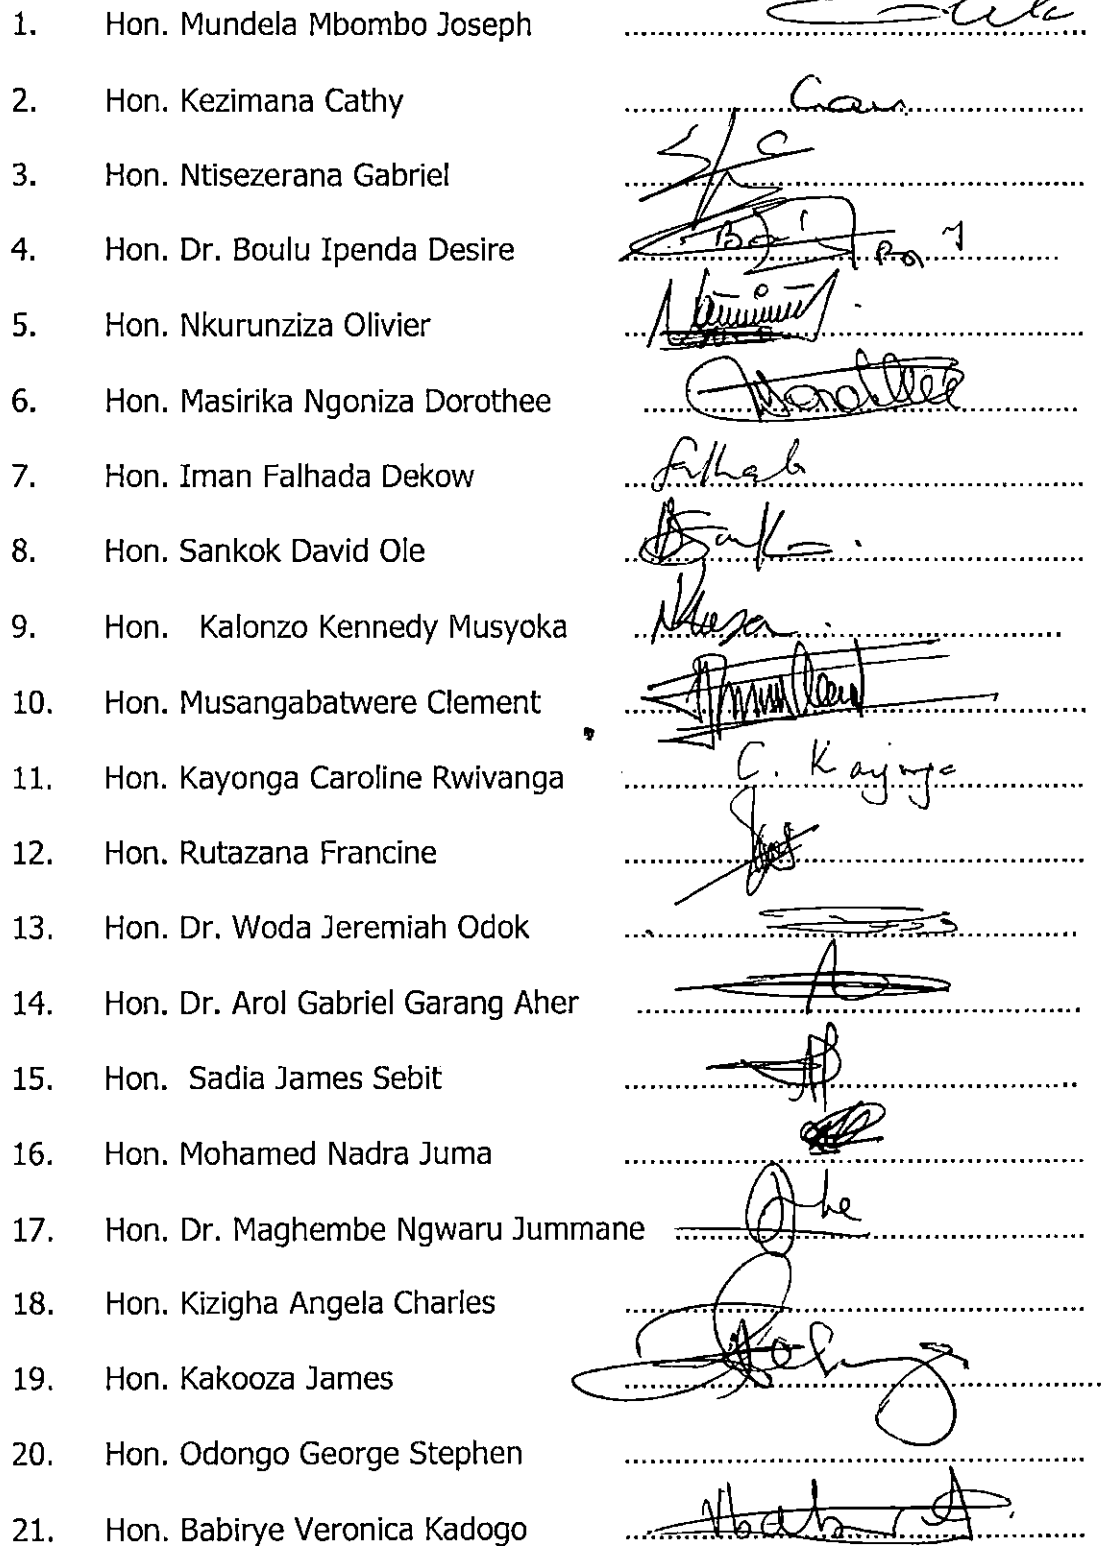 1. Hon. Mundela Mbombo Joseph
2. Hon. Kezimana Cathy
3. Hon. Ntisezerana Gabriel
4. Hon. Dr. Boulu Ipenda Desire
5. Hon. Nkurunziza Olivier
6. Hon. Masirika Ngoniza Dorothee
7. Hon. Iman Falhada Dekow
8. Hon. Sankok David Ole
9. Hon. Kalonzo Kennedy Musyoka
10. Hon. Musangabatwere Clement
11. Hon. Kayonga Caroline Rwivanga C. Kayonga
12. Hon. Rutazana Francine
13. Hon. Dr. Woda Jeremiah Odok
14. Hon. Dr. Arol Gabriel Garang Aher
15. Hon. Sadia James Sebit
16. Hon. Mohamed Nadra Juma
17. Hon. Dr. Maghembe Ngwaru Jummane
18. Hon. Kizigha Angela Charles
19. Hon. Kakooza James
20. Hon. Odongo George Stephen
21. Hon. Babirye Veronica Kadogo